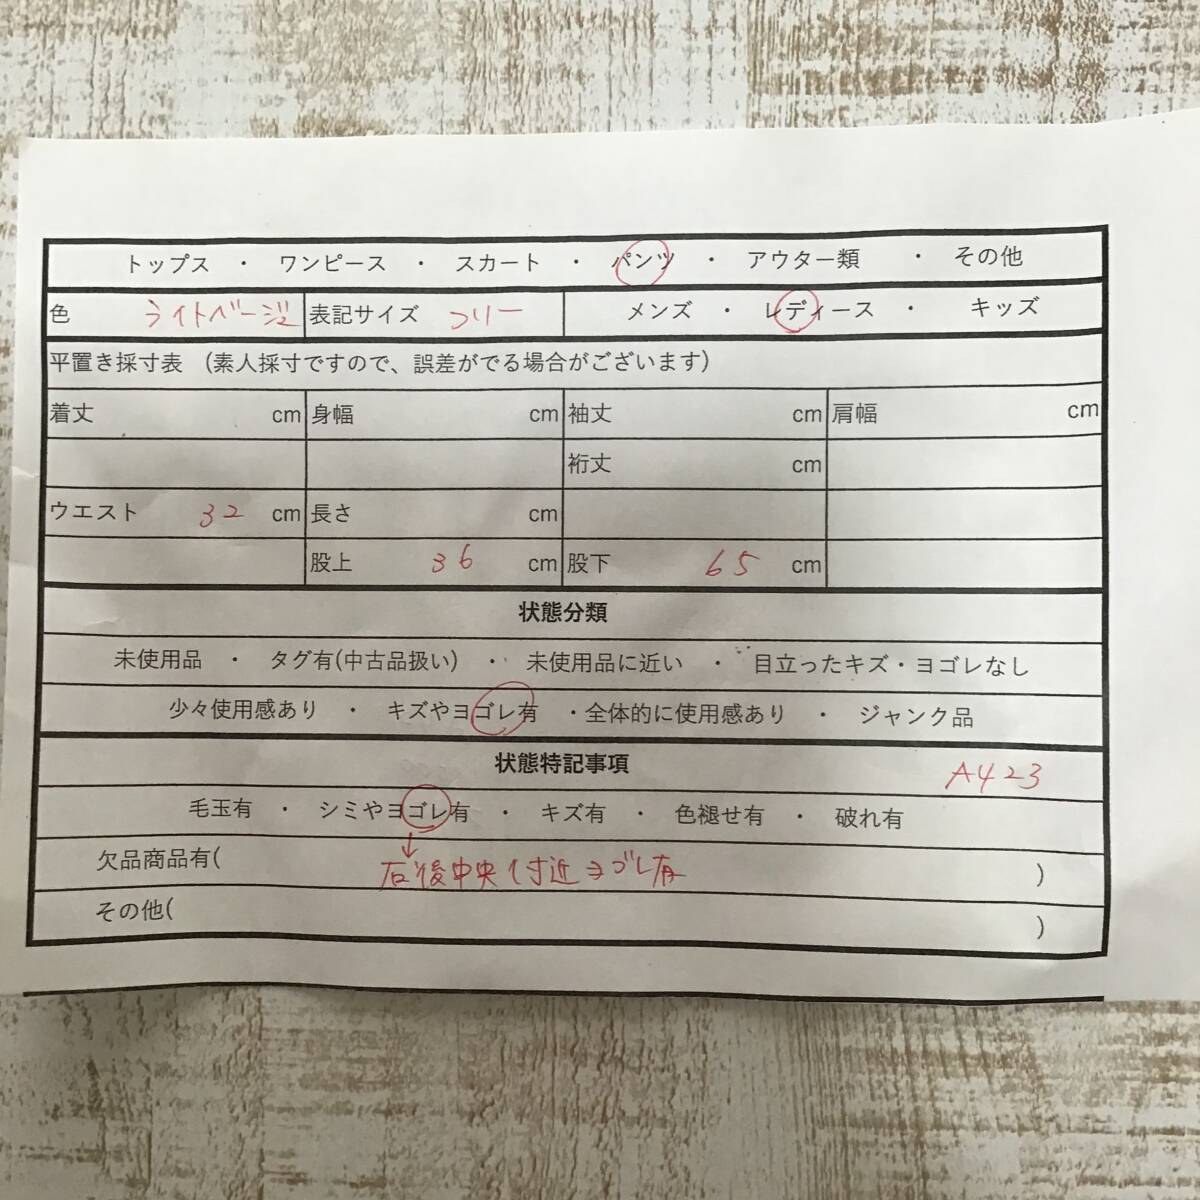 トップス ・ ワンピース ・ スカート ・ パンツ ・ アウター類 ・ その他
色 ライトベージュ 表記サイズ フリー メンズ ・ レディース ・ キッズ
平置き採寸表 (素人採寸ですので、誤差がでる場合がございます)
着丈 cm 身幅 cm 袖丈 cm 肩幅 cm
裄丈 cm
ウエスト 32 cm 長さ cm
股上 36 cm 股下 65 cm
状態分類
未使用品 ・ タグ有(中古品扱い) ・ 未使用品に近い ・ 目立ったキズ・ヨゴレなし
少々使用感あり ・ キズやヨゴレ有 ・全体的に使用感あり ・ ジャンク品
状態特記事項 A423
毛玉有 ・ シミやヨゴレ有 ・ キズ有 ・ 色褪せ有 ・ 破れ有
欠品商品有( 右後中央付近ヨゴレ有 )
その他( )